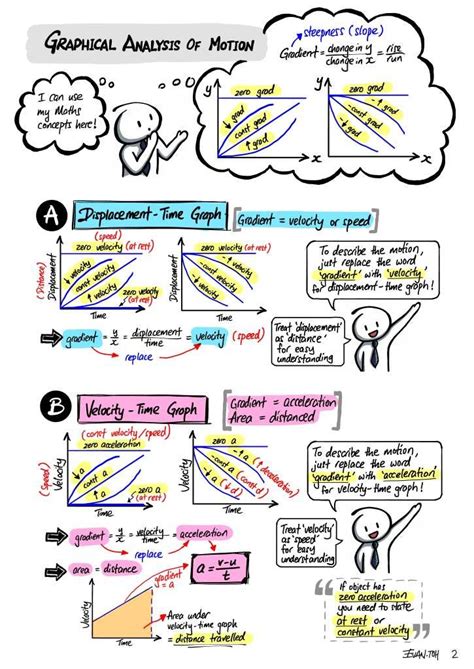 GRAPHICAL ANALYSIS OF MOTION
steepness (slope)
Gradient = change in y / change in x = rise / run
I can use
my Maths
concepts here!
y
zero grad
↓ grad
const grad
↑ grad
x
y
zero grad
-↑ grad
-const grad
-↓ grad
x
A Displacement-Time Graph
Gradient = velocity or speed
(speed)
zero velocity (at rest)
↓ velocity
const velocity
↑ velocity
zero velocity
(at rest)
(Distance)
Displacement
Time
zero velocity (at rest)
-↑ velocity
-const velocity
-↓ velocity
zero velocity
(at rest)
Displacement
Time
gradient = y/x = displacement / time = velocity (speed)
replace
To describe the motion,
just replace the word
'gradient' with 'velocity'
for displacement-time graph!
Treat 'displacement'
as 'distance'
for easy
understanding
B Velocity-Time Graph
Gradient = acceleration
Area = distanced
(const velocity/speed)
zero acceleration
↓ a
const a
↑ a
zero a
(at rest)
(Speed)
Velocity
Time
zero a
-↑ a (↑ deceleration)
-const a (const d)
-↓ a (↓ d)
zero a
(at rest)
Velocity
Time
gradient = y/x = velocity / time = acceleration
replace
area = distance
gradient
= a
a = v-u / t
Velocity
Time
Area under
velocity-time graph
= distance travelled
To describe the motion,
just replace the word
'gradient' with 'acceleration'
for velocity-time graph!
Treat 'velocity'
as 'speed'
for easy
understanding
If object has
zero acceleration
you need to state
at rest or
constant velocity
EVAN TOH 2